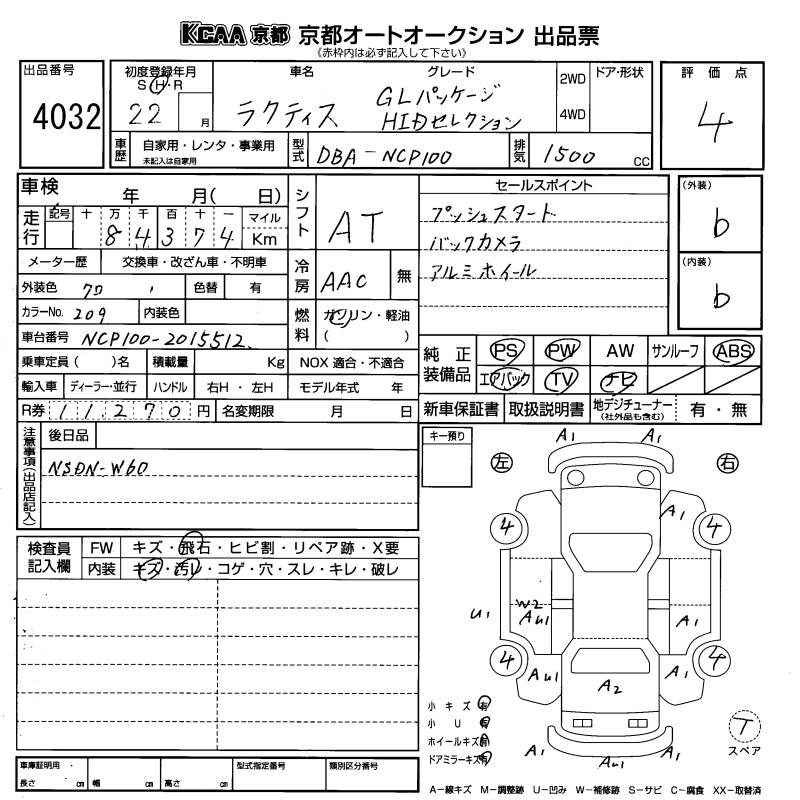 KCAA 京都 京都オートオークション 出品票
《赤枠内は必ず記入して下さい》
出品番号
4032
初度登録年月
S・H・R
22 月
車名
ラクティス
グレード
GLパッケージ
HIDセレクション
2WD
4WD
ドア・形状
評価点
4
車歴
自家用・レンタ・事業用
未記入は自家用
型式
DBA-NCP100
排気
1500 CC
車検 年 月( 日)
走行
記号 十 万 千 百 十 一 マイル
8 4 3 7 4 Km
シフト
AT
セールスポイント
プッシュスタート
バックカメラ
アルミホイール
(外装)
b
(内装)
b
メーター歴 交換車・改ざん車・不明車
外装色 色替 有
冷房
AAC 無
カラーNo. 209 内装色
燃料
ガソリン・軽油
( )
車台番号 NCP100-2015512
乗車定員( )名 積載量 Kg NOX 適合・不適合
輸入車 ディーラー・並行 ハンドル 右H・左H モデル年式 年
R券 11270 円 名変期限 月 日
純正装備品
PS PW AW サンルーフ ABS
エアバック TV ナビ
新車保証書 取扱説明書 地デジチューナー(社外品も含む) 有・無
注意事項(出品店記入)
後日品
NSDN-W60
キー預り
左 右
A1 A1
A1
4 4
W2
U1 AU1 A1
4 4
AU1 A1
A2
A1 AU1 A1
検査員記入欄
FW キズ・飛石・ヒビ割・リペア跡・X要
内装 キズ・汚レ・コゲ・穴・スレ・キレ・破レ
小キズ有
小U有
ホイールキズ有
ドアミラーキズ有
T
スペア
車庫証明用
長さ cm 幅 cm 高さ cm
型式指定番号
類別区分番号
A-線キズ M-調整跡 U-凹み W-補修跡 S-サビ C-腐食 XX-取替済